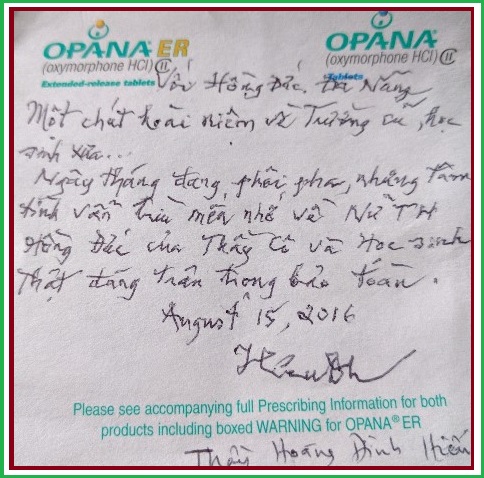 OPANA® ER OPANA®
(oxymorphone HCl) CII (oxymorphone HCl) CII
Extended-release tablets Tablets
Với Hồng Đức, Đà Nẵng
Một chút hoài niệm về Trường cũ, học
sinh xưa...
Ngày tháng đang phôi pha, nhưng tâm
tình vẫn trìu mến nhớ về Nữ TH
Hồng Đức của Thầy Cô và Học sinh
Thật đáng trân trọng bảo toàn.
August 15, 2016
Please see accompanying full Prescribing Information for both
products including boxed WARNING for OPANA® ER
Thầy Hoàng Đình Hiếu